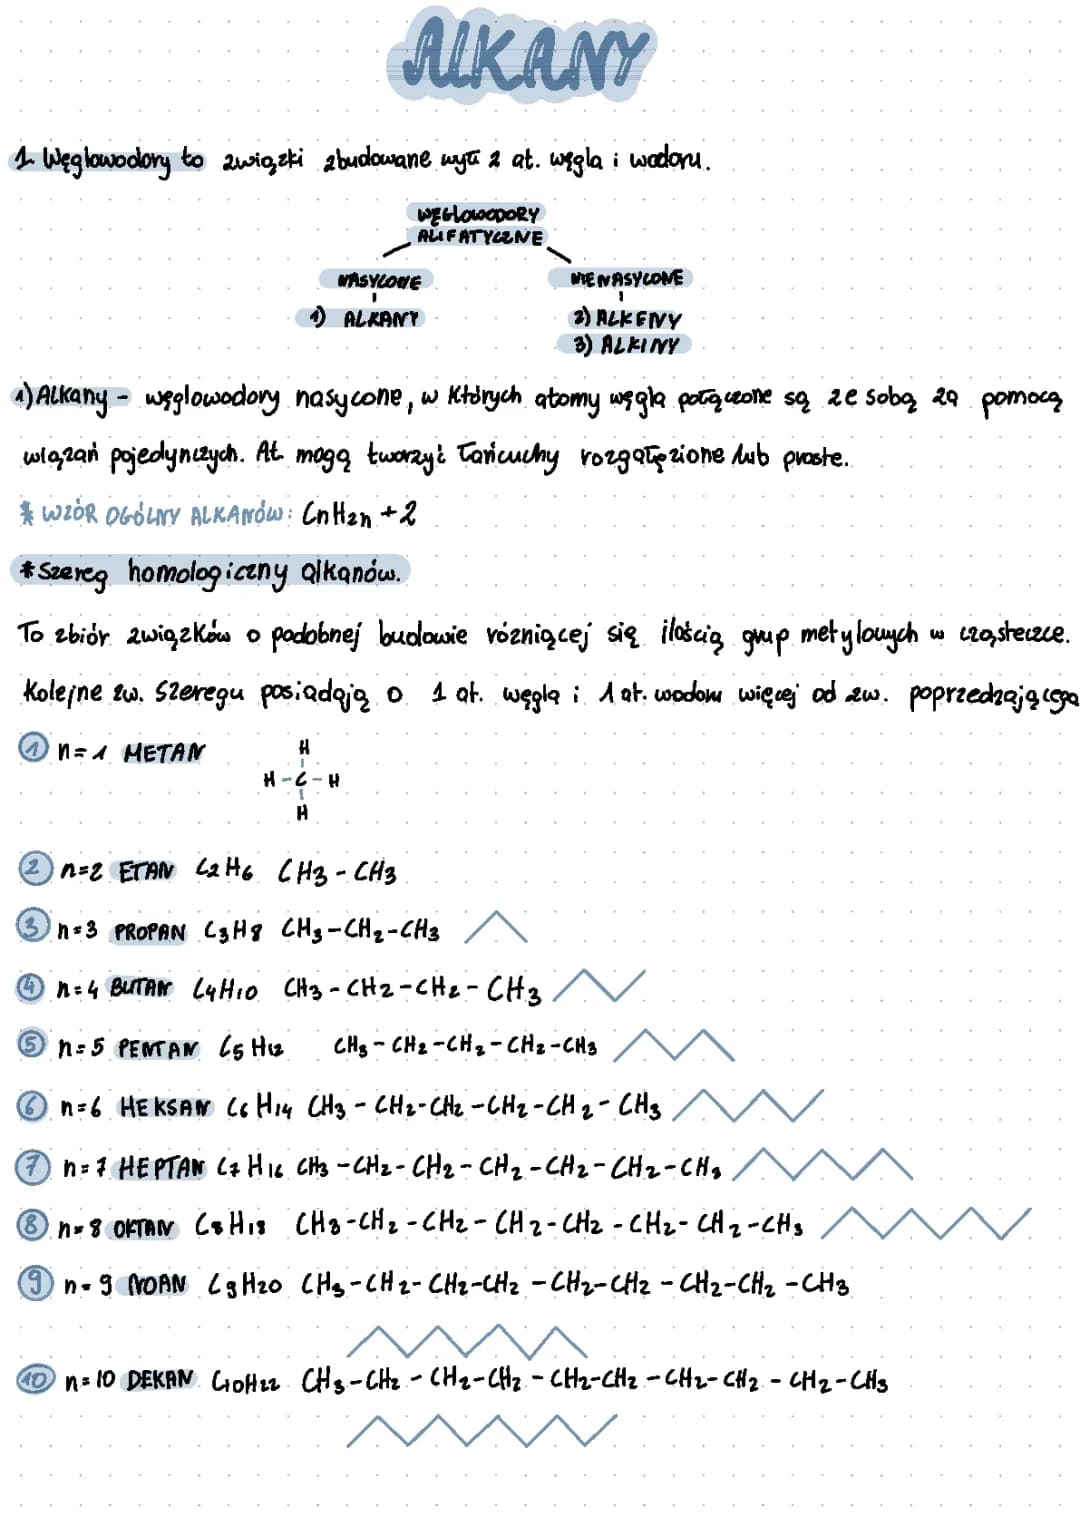 ALKANY
1. Węglowodory to związki zbudowane wyłz z at. węgla i wodoru.
WĘGLOWODORY
ALIFATYCZNE
NASYCONE
NIENASYCONE
1) ALKANY
2) ALKENY
3) ALKINY
1) Alkany - węglowodory nasycone, w których atomy węgla połączone są ze sobą za pomocą
wiązań pojedynczych. At. mogą tworzyć łańcuchy rozgałęzione lub proste.
* WZÓR OGÓLNY ALKANÓW: CnH2n +2
* Szereg homologiczny alkanów.
To zbiór związków o podobnej budowie różniącej się ilością grup metylowych w cząsteczce.
Kolejne zw. szeregu posiadają o 1 at. węgla i 1 at. wodoru więcej od zw. poprzedzającego
1 n=1 METAN
H
H-C-H
H
2 n=2 ETAN C2H6 CH3-CH3
3 n=3 PROPAN C3H8 CH3-CH2-CH3
4 n=4 BUTAN C4H10 CH3-CH2-CH2-CH3
5 n=5 PENTAN C5H12 CH3-CH2-CH2-CH2-CH3
6 n=6 HEKSAN C6H14 CH3-CH2-CH2-CH2-CH2-CH3
7 n=7 HEPTAN C7H16 CH3-CH2-CH2-CH2-CH2-CH2-CH3
8 n=8 OKTAN C8H18 CH3-CH2-CH2-CH2-CH2-CH2-CH2-CH3
9 n=9 NOAN C9H20 CH3-CH2-CH2-CH2-CH2-CH2-CH2-CH2-CH3
10 n=10 DEKAN C10H22 CH3-CH2-CH2-CH2-CH2-CH2-CH2-CH2-CH2-CH3